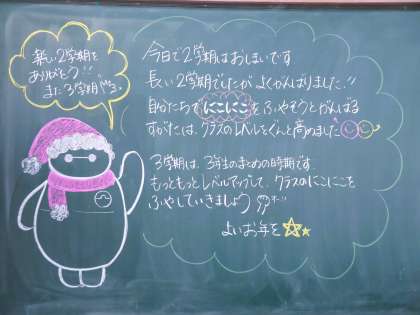 楽しい2学期を
ありがとう!!
また3学期で会
今日で2学期はおしまいです
長い2学期でしたが よくがんばりました!!
自分たちで にこにこ をふやそうとがんばる
すがたは、クラスのレベルをぐんと高めました
3学期は、3年生のまとめの時期です
もっともっとレベルアップして、クラスのにこにこを
ふやしていきましょう
よいお年を